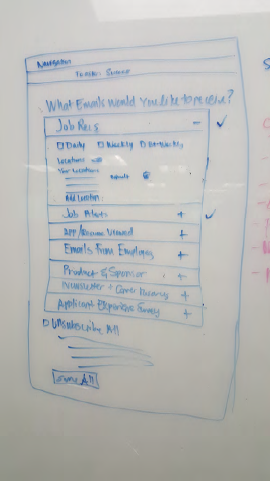 Navigation
What Emails Would You like to receive?
Job Recs -
Daily Weekly Bi-Weekly
Locations
Your Locations
Add Location
Job Alerts +
App/Resume Viewed +
Emails From Employers +
Product & Sponsor +
Newsletter + Career +
Applicant Experience Survey +
Unsubscribe All
Save All